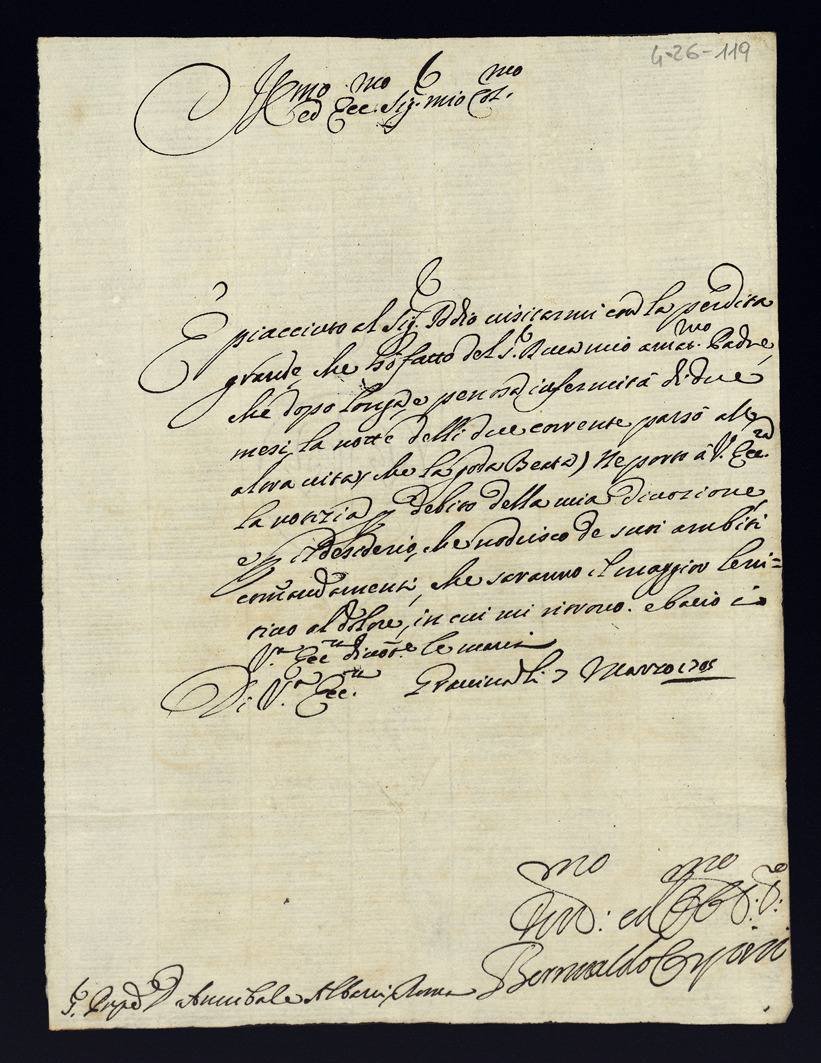 4-26-119
Ill.mo ed Ecc.mo Sig.r mio Col.mo
È piacciuto al Sig.r Iddio uisitarmi con la perdita
grande, che hò fatto del S.r Duca mio amat.mo Padre,
che dopo longa, e penosa infermità di due
mesi, la notte delli due corrente passò all'
altra uita, che la goda Beata) Ne porto à V.ra Ecc.za
la notizia p debito della mia diuozione,
e p il desiderio, che nodrisco de suoi ambiti
comandamenti, che saranno il maggior leni=
tiuo al dolore, in cui mi ritrouo. e bacio à
V.ra Ecc.za le mani
Di V.ra Ecc.za Grauina li 7 Marzo 1705
Bernualdo Orsini
S.r D. Annibale Albani Roma